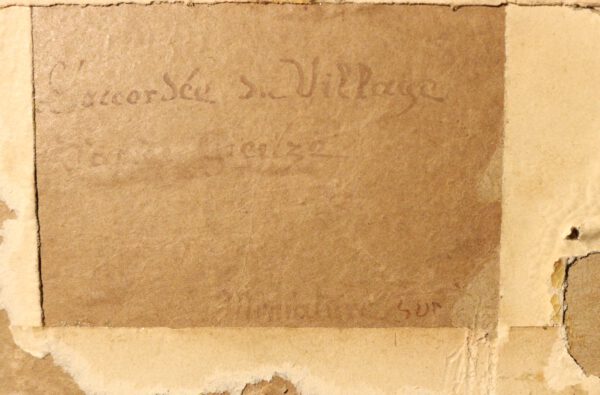 L'accordée du Village
D'après Greuze
Miniature sur